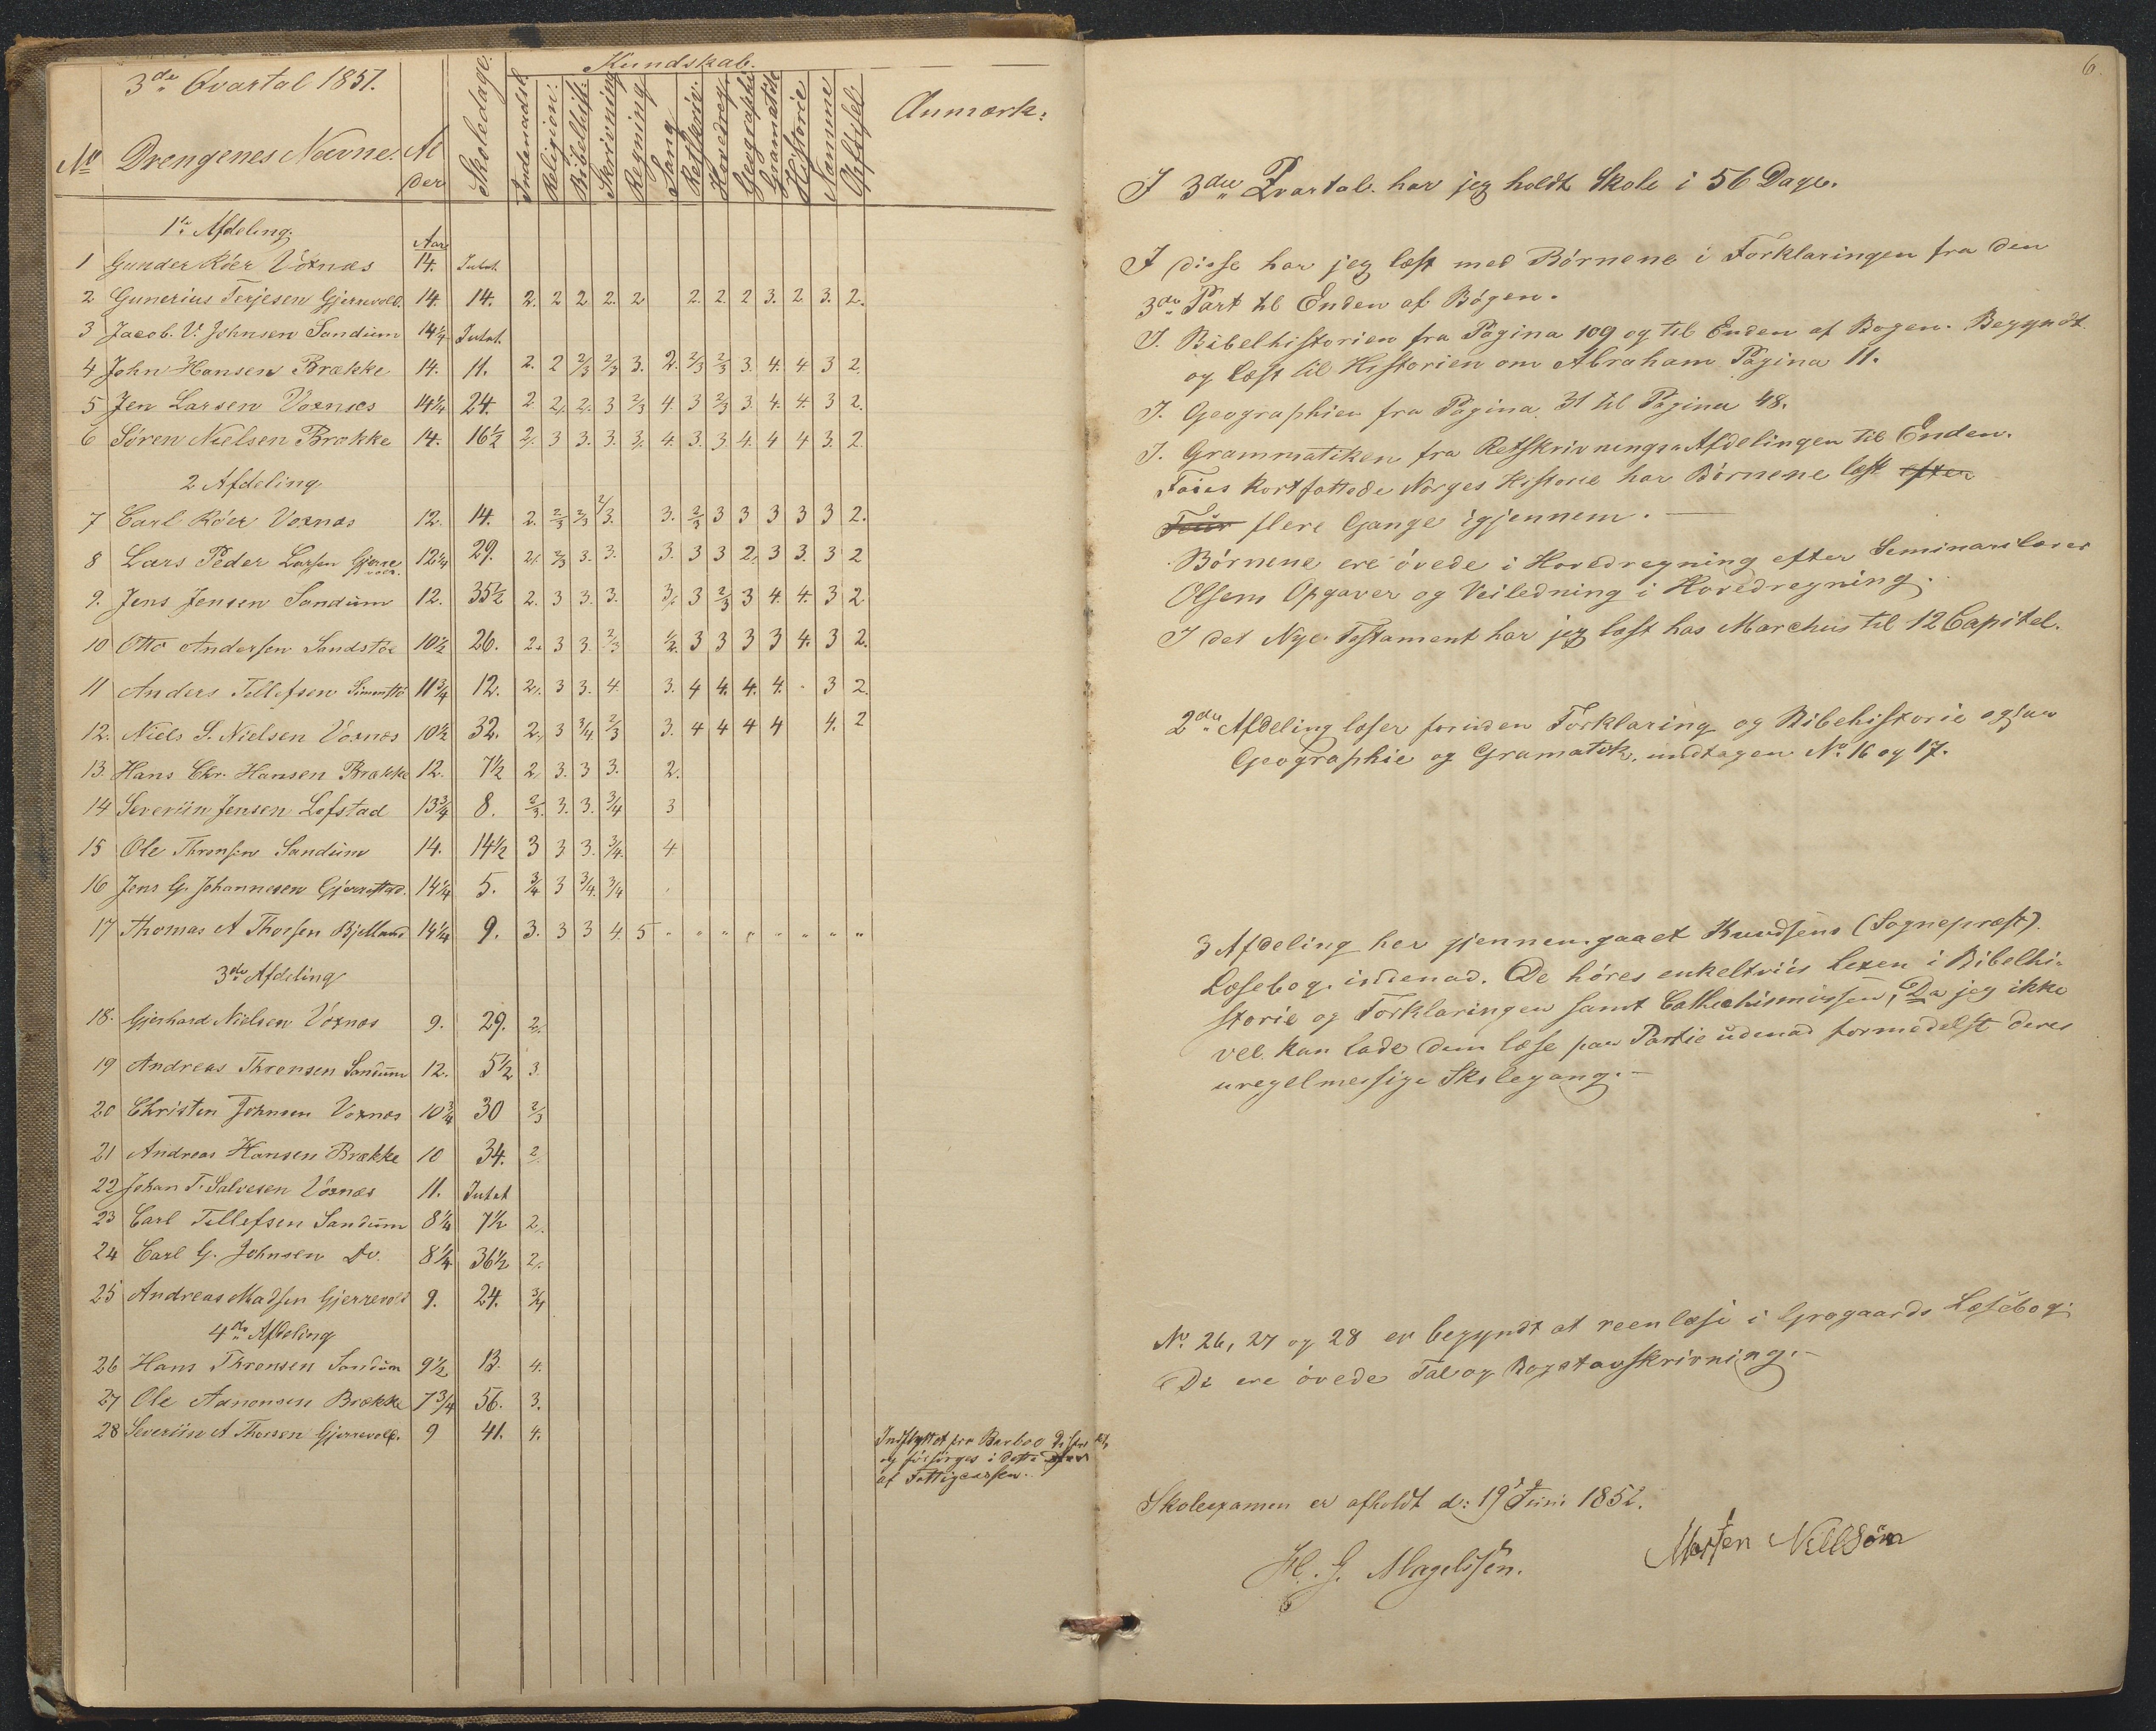 3de Qvartal 1851.
Kundskab.
No Drengenes Navne. Al der Skoledage. Indenadsl. Religion. Bibelhist. Skrivning Regning Sang Retskriv. Hovedreg. Geographi Gramatik Historie Nemme Opførsel Anmærk:
1te Afdeling. Aar
1 Gunder Röer Voxnæs 14. Intet.
2 Gunerius Terjesen Gjerrevold. 14 14. 2. 2 2 2. 2 2. 2 2 3. 2 3. 2.
3 Jacob. V. Johnsen Sandum 14 1/4 Intet.
4 John Hansen Brække 14. 11. 2. 2 2/3 2/3 3. 2. 2/3 2/3 3. 4. 4 3 2.
5 Jen Larsen Voxnæs 14 1/4 24. 2. 2. 2. 3 2/3 4. 3 2/3 3. 4. 4. 3 2.
6 Søren Nielsen Brække 14. 16 1/2 2. 3 3. 3. 3. 4. 3. 3 4. 4 4 3. 2
2 Afdeling
7 Carl Röer Voxnæs 12. 14. 2. 2/3 2/3 2/3. 3. 2/3 3 3 3 3 3 2.
8 Lars Peder Larsen Gjerrevold. 12 1/4 29. 2. 2/3 3. 3. 3. 3 3 2. 3 3. 3 2
9. Jens Jensen Sandum 12. 35 1/2 2. 3 3. 3. 3. 3 2/3 3 4. 4. 3 2
10 Otto Andersen Sandstöe 10 1/2 26. 2. 3 3. 2/3 1/2. 3 3 3 3 4. 3 2.
11 Anders Tellefsen 11 3/4 12. 2. 3 3. 4. 3. 4 4. 4. 4. 3 2.
12. Niels S. Nielsen Voxnæs 10 1/2 32. 2. 3 3/4 2/3 3. 4 4 4 4 4. 2
13. Hans Chr. Hansen Brække 12. 7 1/2 2. 3. 3 3. 2.
14 Severiin Jensen Lofstad 13 3/4 8. 2/3. 3. 3. 3/4 3
15 Ole Thronsen Sandum 14. 14 1/2 3 3 3. 3/4. 4.
16 Jens G. Johannesen Gjerrestad. 14 1/4 5. 3/4 3 3/4. 3/4
17 Thomas A Thorsen Bjelland 14 1/4 9. 3. 3 3 4. 5 " " " " " " " "
3die Afdeling
18. Gjerhard Nielsen Voxnæs 9. 29. 2.
19 Andreas Thronsen Sandum 12. 5 1/2 3.
20 Christen Johnsen Voxnæs 10 3/4 30 2/3
21 Andreas Hansen Brække 10 34. 2.
22 Johan T. Salvesen Voxnæs 11. Intet
23 Carl Tellefsen Sandum 8 1/4 7 1/2 2.
24 Carl G. Johnsen Do. 8 1/4 36 1/2 2.
25 Andreas Madsen Gjerrevold 9. 24. 3/4
4de Afdeling
26 Hans Thronsen Sandum 9 1/2 13. 4.
27 Ole Aanonsen Brække 7 3/4 56. 3.
28 Severiin A Thorsen Gjerrevold. 9 41. 4. Indflyttet fra Barboe
og forsørges i dette
af Fattigcassen.
6.
I 3die Qvartal. har jeg holdt Skole i 56 Dage.
I disse har jeg læst med Børnene i Forklaringen fra den
3die Part til Enden af Bogen.
I. Bibelhistorien fra Pagina 109 og til Enden af Bogen. Begyndt
og læst til Historien om Abraham Pagina 11.
I. Geographien fra Pagina 31 til Pagina 48.
I. Grammatiken fra Retskrivnings-Afdelingen til Enden.
Faies kortfattede Norges Historie har Børnene læst efter
flere Gange igjennem.
Børnene ere övede i Hovedregning efter Seminarilærer
Olsens Opgaver og Veiledning i Hovedregning.
I det Nye-Testament har jeg læst hos Marchus til 12 Capitel.
2den Afdeling læser foruden Forklaring og Bibehistorie ogsaa
Geographie og Gramatik, undtagen No 16 og 17.
3 Afdeling har gjennemgaaet Knudsens (Sognepræst)
Læsebog, indenad. De høres enkeltviis Lexen i Bibelhi-
storie og Forklaringen samt Cathechismussen, Da jeg ikke
vel kan lade dem læse paa Partie udenad formedelst deres
uregelmessige Skolegang.–
No. 26, 27 og 28 er begyndt at reenlæse i Grøgaards Læsebog.
De ere övede Tal og Bogstavskrivning.–
Skoleexamen er afholdt d: 19 Juni 1852.
H. G. Magelssen. Morten Nillsön